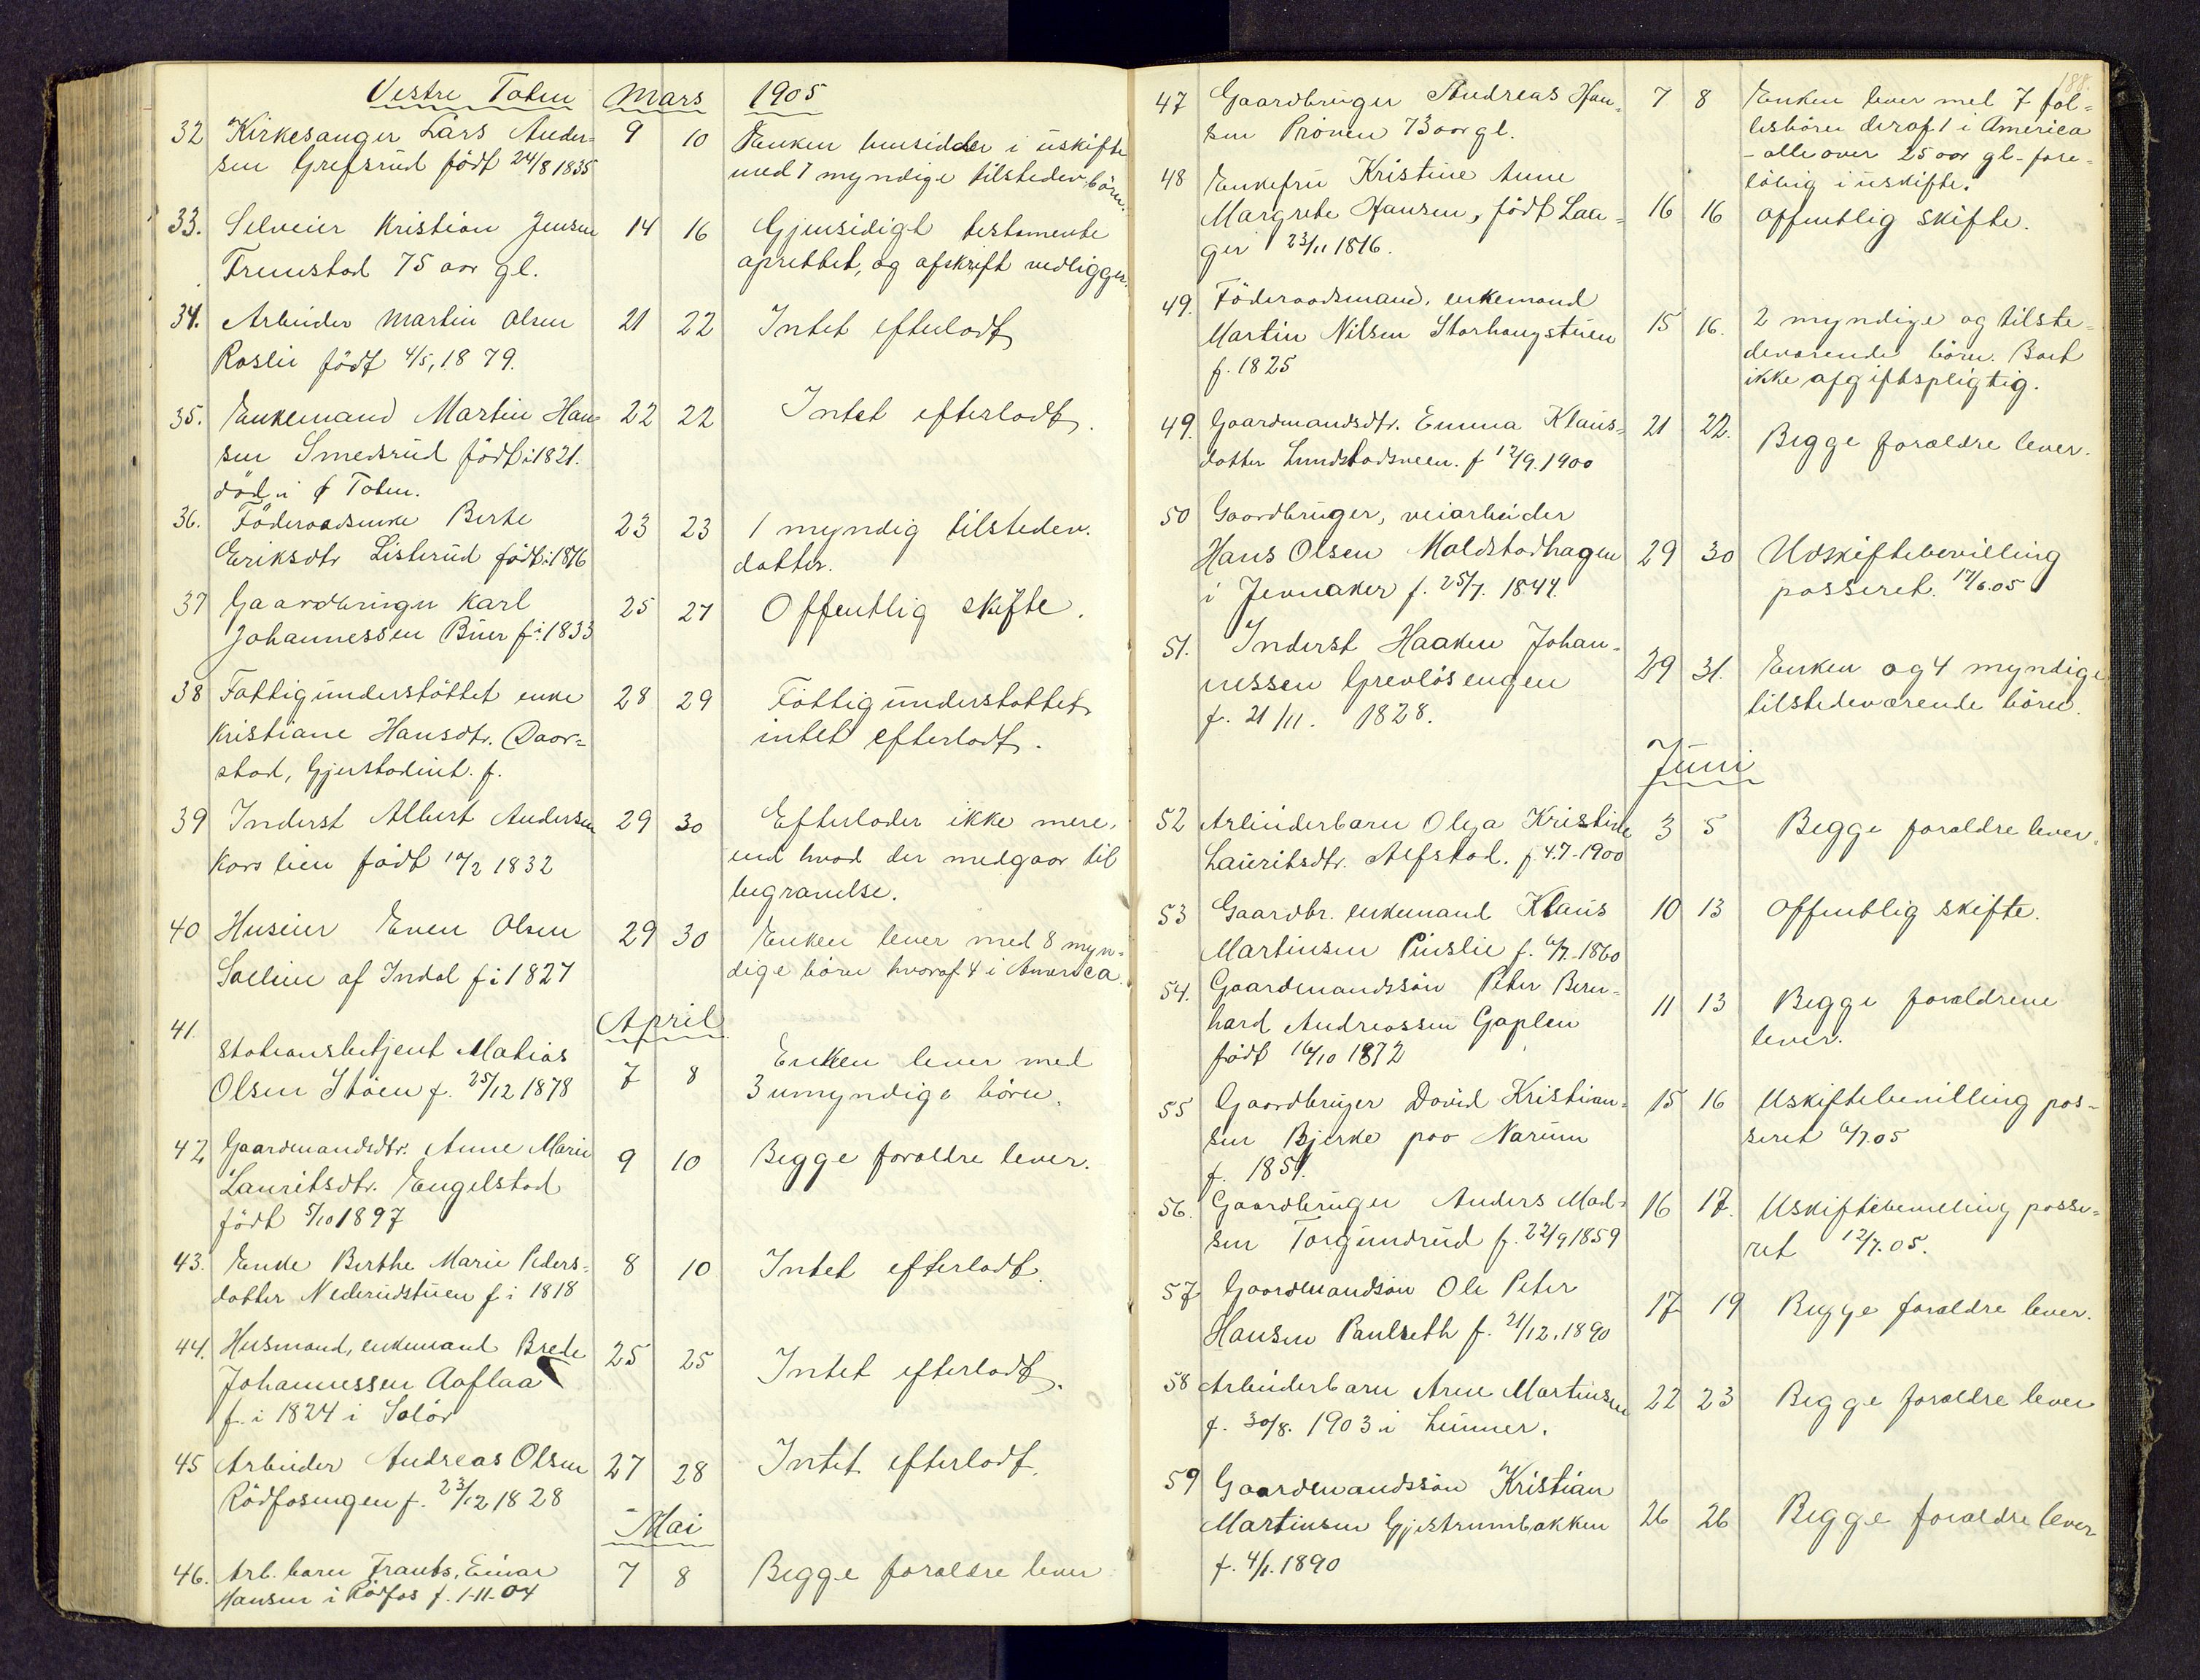 Vestre Toten Mars 1905
32 Kirkesanger Lars Ander- 9 10 Enken hensidder i uskifte
sen Grefsrud född 24/8 1835 med 7 myndige tilstedev. börn.
33. Selveier Kristian Jensen 14 16 Gjensidigt testamente
Fremstad 75 aar gl. oprettet, og afskrift vedligger.
34. Arbeider Martin Olsen 21 22 Intet efterladt
Roslie född 4/5, 1879.
35. Enkemand Martin Han- 22 22 Intet efterladt.
sen Smedsrud född i 1821.
död i Ø Toten.
36. Föderaadsenke Berte 23 23 1 myndig tilstedev.
Eriksdtr Listerud född i 1816 datter.
37 Gaardbruger Karl 25 27 Offentlig skifte.
Johannessen Buer f i 1833
38 Fattigunderstöttet enke 28 29 Fattigunderstöttet
Kristiane Hansdtr. Daor= intet efterladt.
stad, Gjerstadeint. f.
39 Inderst Albert Andersen 29 30 Efterlader ikke mere,
Korslien född 10/2 1832 end hvad der medgaar til
begravelse.
40 Huseier Even Olsen 29 30 Enken lever med 8 myn-
Saeline af Indal f i 1827 dige börn hvoraf 4 i America.
April
41. Stationsbetjent Matias
Olsen Stöen f. 25/12 1878 7 8 Enken lever med
3 umyndige börn.
42 Gaardmandsdtr. Anne Marie 9 10 Begge foraldre lever.
Lauritsdtr. Engelstad
född 5/10 1897
43. Enke Berthe Marie Peders- 8 10 Intet efterladt.
datter Nederudstuen f i 1818
44. Husmand, enkemand Brede 25 25 Intet efterladt.
Johannessen Aaflaa
f. i 1824 i Solör
45 Arbeider Andreas Olsen 27 28 Intet efterladt.
Rödfosengen f. 23/12 1828
Mai
46. Arb. barn Frants, Einar 7 8 Begge foraldre lever
Hansen i Rödfos f. 1-11-04
188.
47 Gaardbruger Andreas Han- 7 8 Enken lever med 7 fæl-
sen Pröven 73 aar gl. lesbörn deraf 1 i America
- alle over 25 aar gl - fore-
löbig i uskifte.
48 Enkefru Kristine Anne
Margrete Hansen, född Laa- 16 16 Offentlig skifte.
ger 23/11 1816.
49. Föderaadsmand, enkemand
Martin Nilsen Storhaugstuen 15 16. 2 myndige og tilste-
f. 1825 deværende börn. Boet
ikke afgiftspligtig.
49. Gaardmandsdtr. Emma Klaus- 21 22. Begge foraldre lever.
datter Lundstadsveen. f 12/9. 1900
50 Gaardbruger, veiarbeider
Hans Olsen Moldstadhagen 29 30 Udskiftebevilling
i Jevnaker f. 25/7. 1844. passeret. 17/6.05
51. Inderst Haaken Johan-
nessen Grevlösengen 29 31. Enken og 4 myndige
f. 21/11. 1828. tilstedeværende börn.
Juni
52 Arbeiderbarn Olga Kristine 3 5 Begge foraldre lever.
Lauritsdtr. Alfstad. f. 4.7-1900
53 Gaardbr. enkemand Klaus 10 13 Offentlig skifte.
Martinsen Pinslie f. 6/7.-1860
54. Gaardmandssön Peter Bern- 11 13 Begge foraldrene
hard Andreassen Gaplen lever.
född 16/10 1872
55 Gaardbruger David Kristian- 15 16 Uskiftebevilling pas-
sen Bjerke paa Narum seret 6/7.05
f. 1851.
56. Gaardbruger Anders Mad- 16 17. Uskiftebevilling passe-
sen Torgundrud f. 22/9 1859 ret 12/7.05.
57 Gaardmandsön Ole Peter 17 19 Begge foraldre lever.
Hansen Paulseth f. 21/12. 1890
58 Arbeiderbarn Arne Martinsen 22 23 Begge foraldre lever
f. 30/8. 1903 i Lunner.
59 Gaardmandssön Kristian
Martinsen Gjestrumbakken 26 26 Begge foraldre lever
f. 4/1. 1890